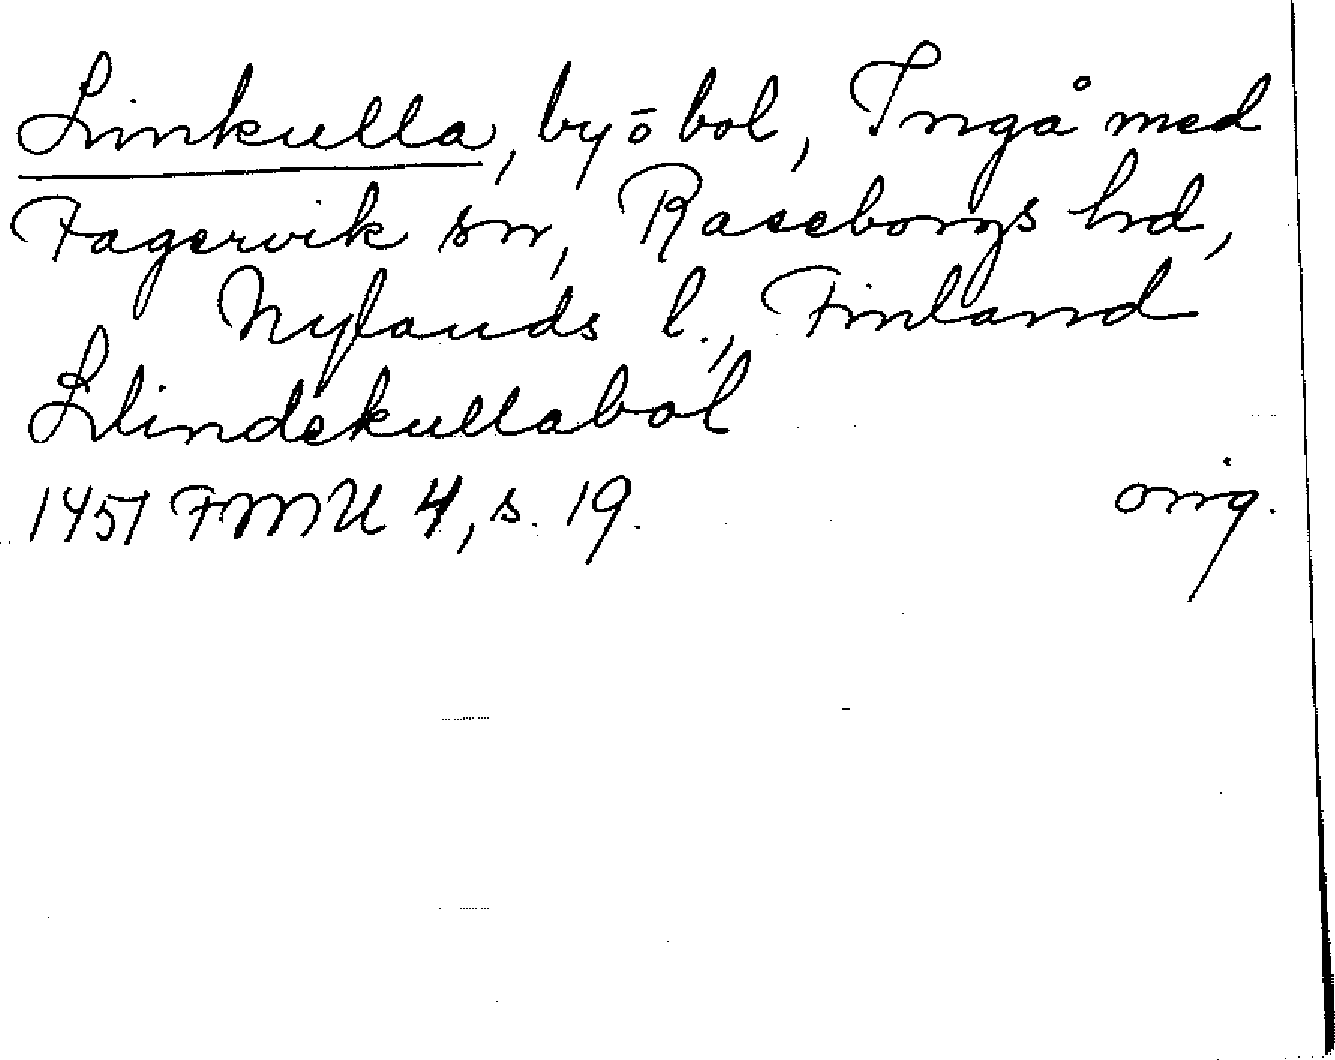 Linkulla, by ō bol, Ingå med
Fagervik sn, Raseborgs hd,
Nylands l., Finland
Llindekullabol
1451 FMU 4, s. 19. orig.